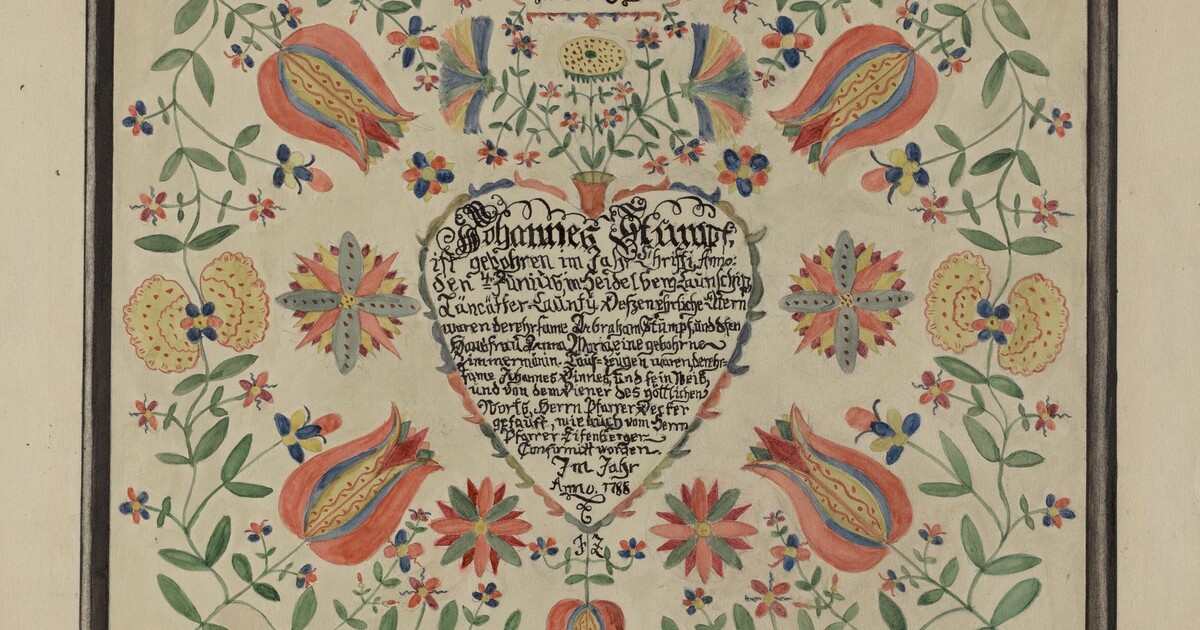 Johannes Stumpf,
ist gebohren im Jahr Christi, Anno:
den 4 Junius, in Heidelberg Taunschip,
Läncäster Caunty. Deszen ehrliche Eltern
waren der ehrsame Abraham Stumpf, und deßen
Hausfrau Anna Maria, eine gebohrne
Zimmermänn. Tauf-zeugen waren der ehr-
same Johannes und sein Weib,
und von dem Diener des göttlichen
Worts, Herrn Pfarrer Decker
getauft, wie auch vom Herrn
Pfarrer Eisenberger
Confirmirt worden.
Im Jahr
Anno. 1788